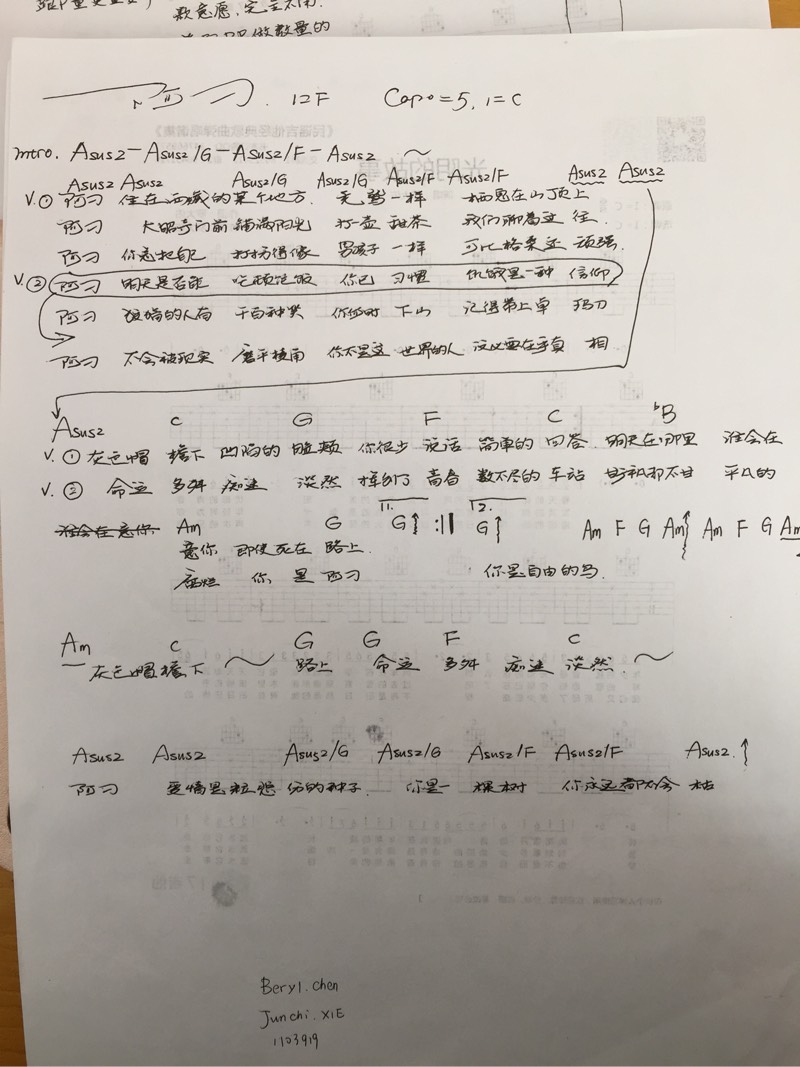 歌意愿,完全不用.
做数量的
阿刁. 12F Capo=5, 1=C
Intro. Asus2—Asus2/G—Asus2/F—Asus2 ～
Asus2 Asus2 Asus2/G Asus2/G Asus2/F Asus2/F Asus2 Asus2
V.① 阿刁 住在西藏的某个地方. 秃鹫一样 栖息在山顶上
阿刁 大昭寺门前 铺满阳光 打一壶 甜茶 我们聊着过往.
阿刁 你总把自己 打扮得像 男孩子 一样 可比格桑还 顽强.
V.② 阿刁 明天是否能 吃顿饱饭 你已 习惯 饥饿是一种 信仰
阿刁 狡猾的人有 千百种笑 你何时 下山 记得带上卓 玛刀
阿刁 不会被现实 磨平棱角 你不是这 世界的人 没必要在乎真 相
Asus2 C G F C ♭B
V.① 灰色帽 檐下 凹陷的 脸颊 你很少 说话 简单的 回答. 明天在哪里 谁会在
V.② 命运 多舛 痴迷 淡然 挥别了 青春 数不尽的 车站 甘于平凡却不甘 平凡的
谁会在意你 Am G 1. G↑ :‖ 2. G↑ Am F G Am Am F G Am
意你 即使死在 路上.
腐烂 你 是 阿刁 你是自由的鸟.
Am C G G F C
灰色帽檐下 ～ 路上 命运 多舛 痴迷 淡然. ～
Asus2 Asus2 Asus2/G Asus2/G Asus2/F Asus2/F Asus2.↑
阿刁 爱情是粒 伤的种子. 你是一 棵树 你永远都不会 枯
Beryl.chen
Junchi.XIE
1103919